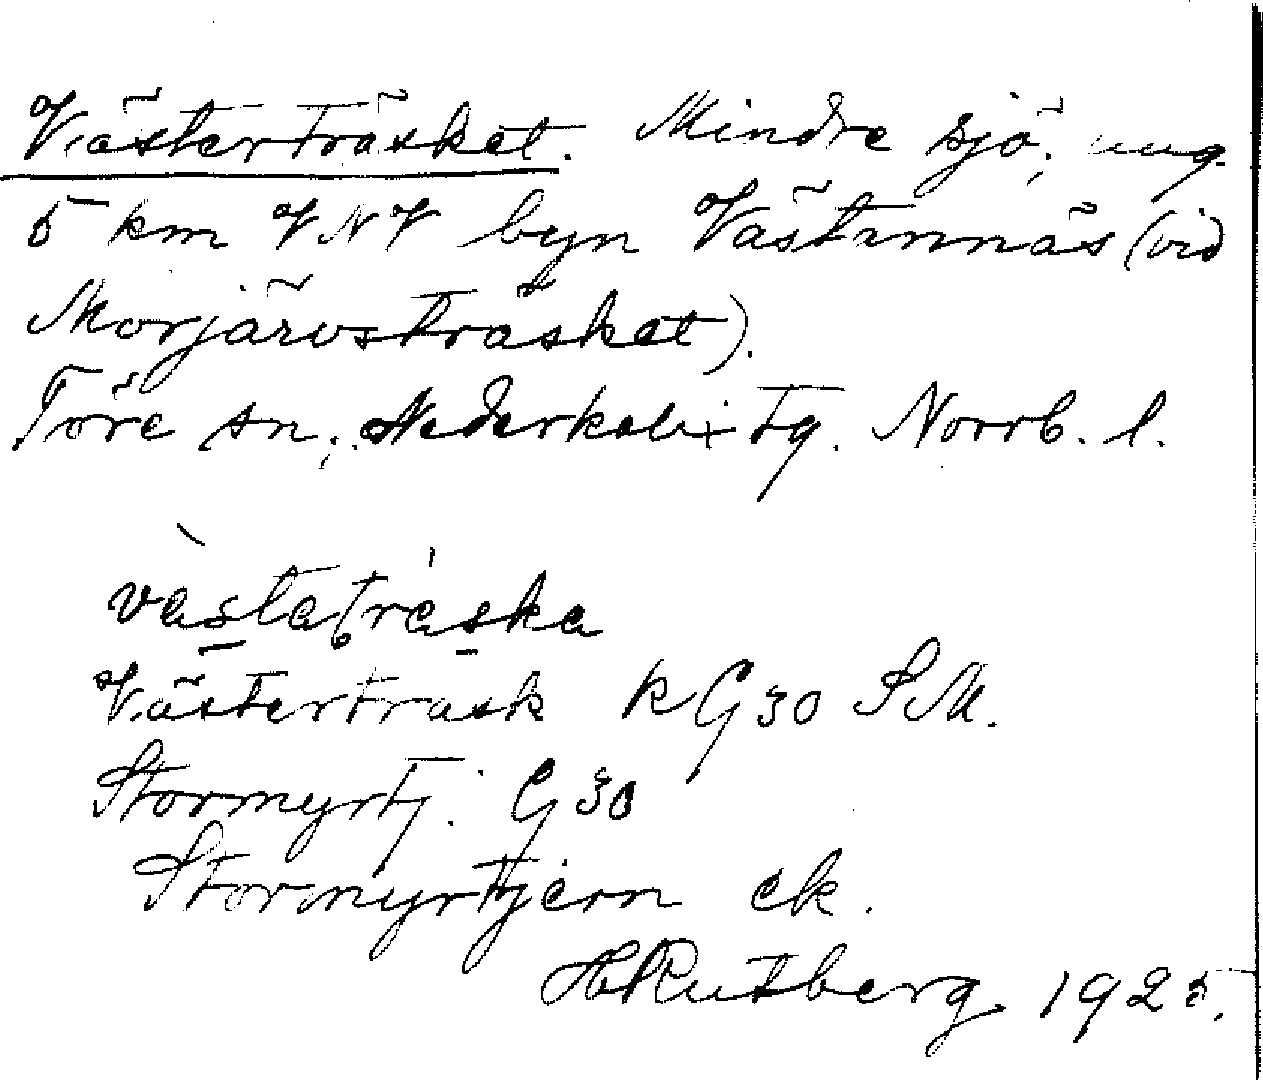 Västerträsket. Mindre sjö, ung.
5 km VNV byn Västannäs (vid
Morjärvsträsket).
Töre sn, Nederkalix tg. Norrb. l.
västaträska
Västerträsk kG30 SM.
Stormyrtj. G30
Stormyrtjern ek.
HRutberg 1925.